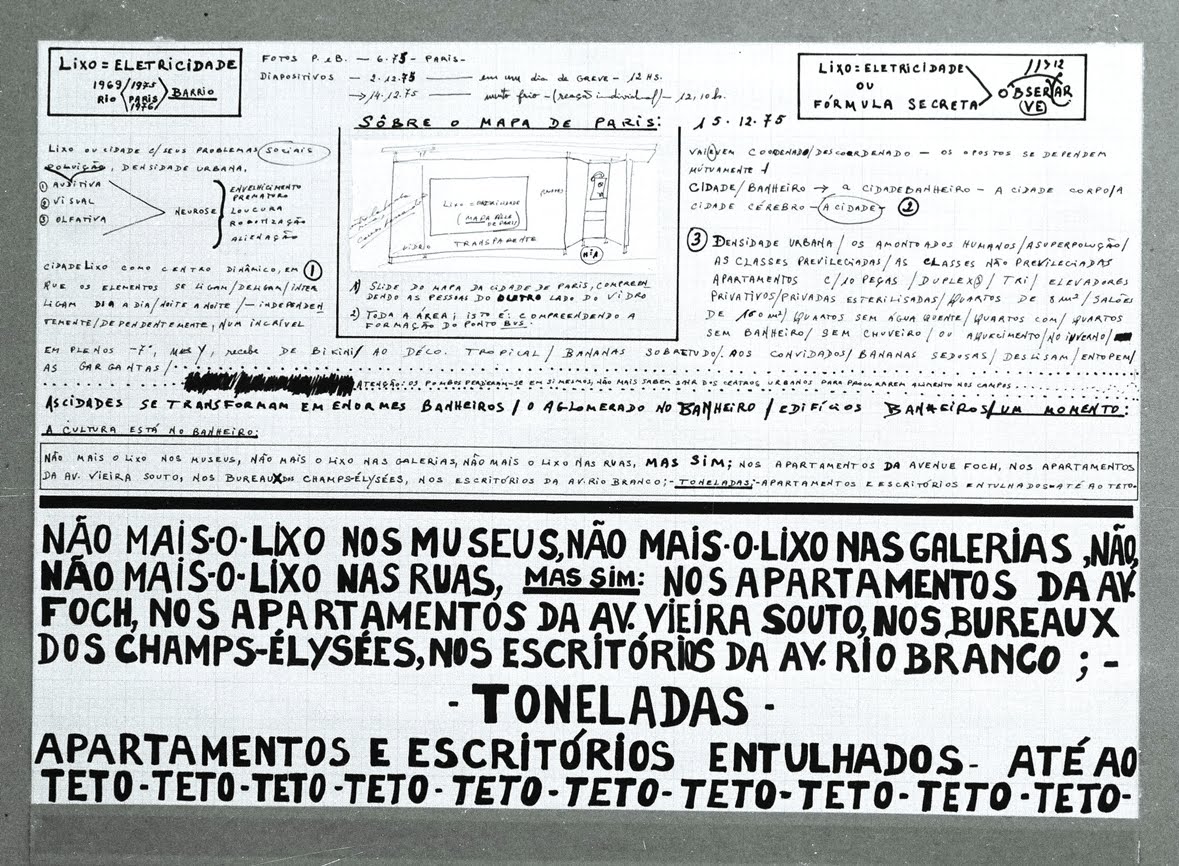 LIXO = ELETRICIDADE
1969/1975
RIO PARIS BARRIO
1976
FOTOS P. & B. — 6.75 — PARIS —
DIAPOSITIVOS — 2.12.75 — em um dia de GREVE — 12 HS.
→ 14.12.75 — muito frio — (reação individual) — 12,10 h.
LIXO = ELETRICIDADE
OU
FÓRMULA SECRETA
OBSERVAR
(VE)
SÔBRE O MAPA DE PARIS:
15.12.75
LIXO OU CIDADE C/ SEUS PROBLEMAS SOCIAIS
POLUIÇÃO, DENSIDADE URBANA,
① AUDITIVA
② VISUAL
③ OLFATIVA
NEUROSE
ENVELHECIMENTO
PREMATURO
LOUCURA
ROBOTIZAÇÃO
ALIENAÇÃO
CIDADE LIXO COMO CENTRO DINÂMICO, EM ①
QUE OS ELEMENTOS SE LIGAM/DELIGAM/INTER
LIGAM DIA A DIA/NOITE A NOITE/— INDEPENDEN
TEMENTE/DEPENDENTEMENTE, NUM INCRÍVEL
LIXO = ELETRICIDADE
VIDRO TRANSPARENTE
1) SLIDE DO MAPA DA CIDADE DE PARIS, COMPREEN
DENDO AS PESSOAS DO OUTRO LADO DO VIDRO
2) TODA A ÁREA; ISTO É: COMPREENDENDO A
FORMAÇÃO DO PONTO BUS.
VAI E VEM COORDENADO/DESCOORDENADO — OS OPOSTOS SE DEPENDEM
MÚTUAMENTE
CIDADE/BANHEIRO → A CIDADEBANHEIRO — A CIDADE CORPO/A
CIDADE CÉREBRO — A CIDADE — ②
③ DENSIDADE URBANA / OS AMONTOADOS HUMANOS/A SUPERPOLUÇÃO/
AS CLASSES PREVILEGIADAS/AS CLASSES NÃO PREVILEGIADAS
APARTAMENTOS C/10 PEÇAS /DUPLEXS/ TRI/ ELEVADORES
PRIVATIVOS/PRIVADAS ESTERILISADAS/QUARTOS DE 8 m²/SALÕES
DE 160 m²/QUARTOS SEM ÁGUA QUENTE/QUARTOS COM/QUARTOS
SEM BANHEIRO/ SEM CHUVEIRO / OU AQUECIMENTO/NO INVERNO/
EM PLENOS -7°, recebe DE BIKINI/ AO DÉCO. TROPICAL/ BANANAS SOBRETUDO/. AOS CONVIDADOS/ BANANAS SEDOSAS/ DESLISAM/ENTOPEM/
AS GARGANTAS/
ATENÇÃO: OS POMBOS PERDERAM-SE EM SI MESMOS, NÃO MAIS SABEM SAIR DOS CENTROS URBANOS PARA PROCURAREM ALIMENTO NOS CAMPOS
AS CIDADES SE TRANSFORMAM EM ENORMES BANHEIROS / O AGLOMERADO NO BANHEIRO / EDIFÍCIOS BANHEIROS/UM MOMENTO:
A CULTURA ESTÁ NO BANHEIRO:
NÃO MAIS O LIXO NOS MUSEUS, NÃO MAIS O LIXO NAS GALERIAS, NÃO MAIS O LIXO NAS RUAS, MAS SIM; NOS APARTAMENTOS DA AVENUE FOCH, NOS APARTAMENTOS
DA AV. VIEIRA SOUTO, NOS BUREAUX DOS CHAMPS-ÉLYSÉES, NOS ESCRITÓRIOS DA AV. RIO BRANCO; - TONELADAS - APARTAMENTOS E ESCRITÓRIOS ENTULHADOS - ATÉ AO TETO-
NÃO MAIS-O-LIXO NOS MUSEUS, NÃO MAIS-O-LIXO NAS GALERIAS, NÃO,
NÃO MAIS-O-LIXO NAS RUAS, MAS SIM: NOS APARTAMENTOS DA AV.
FOCH, NOS APARTAMENTOS DA AV. VIEIRA SOUTO, NOS BUREAUX
DOS CHAMPS-ÉLYSÉES, NOS ESCRITÓRIOS DA AV. RIO BRANCO ; -
- TONELADAS -
APARTAMENTOS E ESCRITÓRIOS ENTULHADOS - ATÉ AO
TETO-TETO-TETO-TETO-TETO-TETO-TETO-TETO-TETO-TETO-